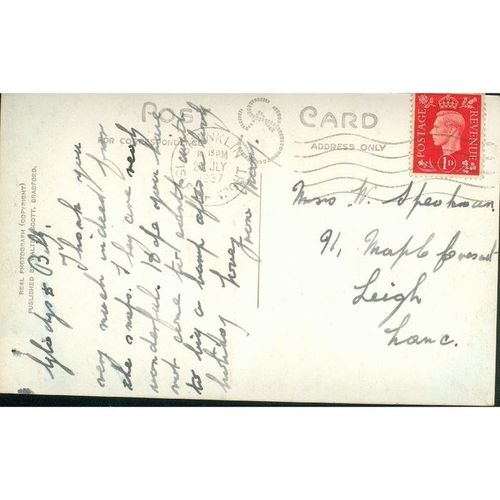 POST CARD
FOR CORRESPONDENCE
ADDRESS ONLY
POSTAGE REVENUE
1D
SHANKLIN
15PM
JLY
1937
REAL PHOTOGRAPH (COPYRIGHT)
PUBLISHED BY WALTER SCOTT, BRADFORD.
Gladys & Billy.
Thank you
very much indeed for
the snaps. They are really
wonderful. Hope you are
not come to earth with
to big a bump after your
holiday love
from Mary.
Mrs W. Speakman
91, Maple
Leigh
Lanc.